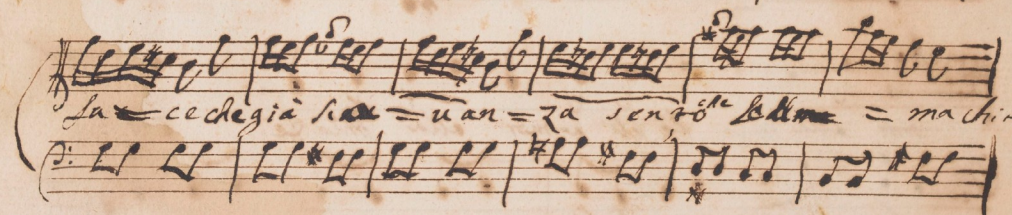 fa = ce che già s'a = uan = za sento che = ma chi